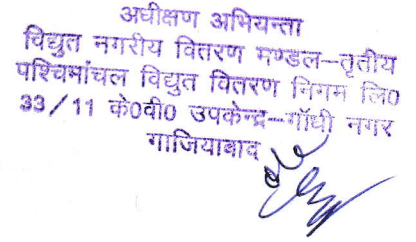 अधीक्षण अभियन्ता
विद्युत नगरीय वितरण मण्डल–तृतीय
पश्चिमांचल विद्युत वितरण निगम लि0
33/11 के0वी0 उपकेन्द्र–गाँधी नगर
गाजियाबाद